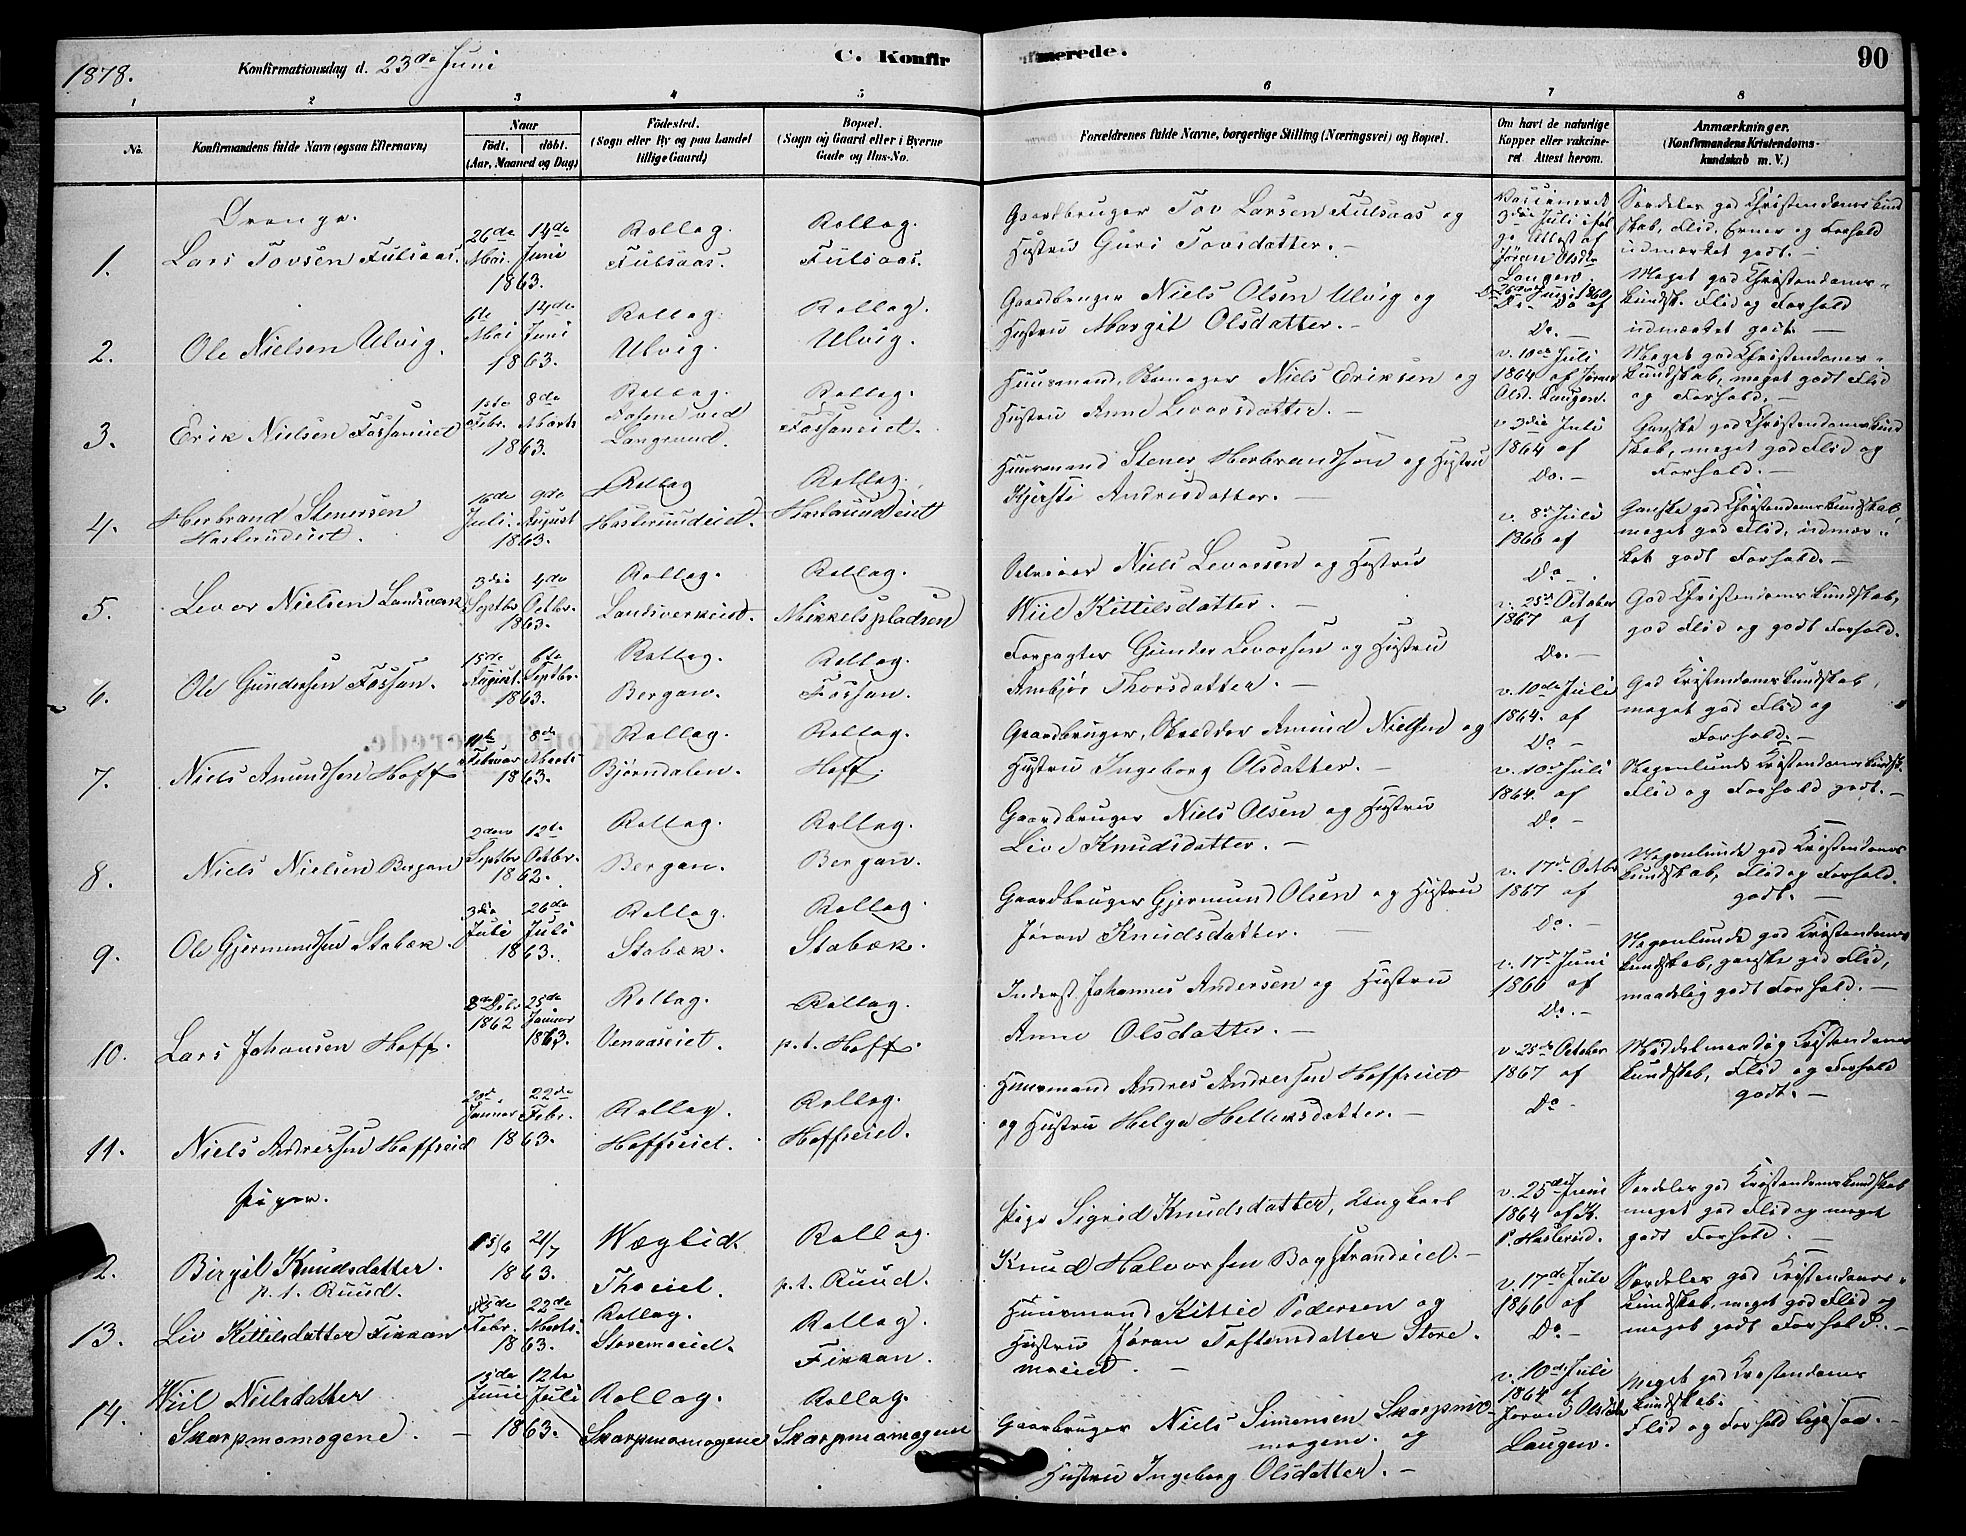 1878.
Konfirmationsdag d. 23de Juni
C. Konfirmerede.
90
1 2 3 4 5 6 7 8
No.
Konfirmandens fulde Navn (ogsaa Efternavn)
Naar
födt. döbt.
(Aar, Maaned og Dag)
Födested.
(Sogn eller By og paa Landet
tillige Gaard)
Bopæl.
(Sogn og Gaard eller i Byerne
Gade og Hus-No.
Forældrenes fulde Navne, borgerlige Stilling (Næringsvei) og Bopæl.
Om havt de naturlige
Kopper eller vakcine-
ret. Attest herom.
Anmærkninger.
(Konfirmandens Kristendoms-
kundskab m. V.)
Drenge.
1.
Lars Tovsen Fulsaas.
26de Mai 14de Juni
1863
Rollag.
Fulsaas.
Rollag.
Fulsaas.
Gaardbruger Tov Larsen Fulsaas og
Hustru Guri Tovsdatter. —
Særdeles god Christendomskund
skab, Flid, Evner og Forhold
udmærket godt. —
2.
Ole Nielsen Ulvig.
6te Mai 14de Juni
1863.
Rollag.
Ulvig.
Rollag.
Ulvig.
Gaardbruger Niels Olsen Ulvig og
Hustru Margit Olsdatter. —
Do. —
Meget god Christendoms-
kundsk. Flid og Forhold
udmærket godt. —
3.
Erik Nielsen Fossaneiet
1ste Febr. 8de Marts
1863.
Rollag.
Rollag.
Fossaneiet.
Huusmand, Niels Eriksen og
Hustru Anne Levorsdatter. —
v. 10de Juli
1864 af Jøran
Olsd. Laugen.
Meget god Christendoms-
kundskab, meget godt Flid
og Forhold. —
4.
Herbrand Stenersen
Haslerudeiet.
16de Juli. 9de August
1863.
Rollag
Haslerudeiet.
Rollag.
Haslerudeiet
Huusmand Stener Herbrandsen og Hustru
Kjersti Andresdatter. —
v 3die Juli
1864 af
Do. —
Ganske god Christendomskund
skab, meget god Flid og
Forhold. —
5.
Levor Nielsen Landsverk
3die Septbr 4de Octbr.
1863.
Rollag.
Landsverkeiet.
Rollag.
Mikkelspladsen
Niels Levorsen og Hustru
Wiil Kittilsdatter. —
v. 8de Juli
1866 af
Do —
Ganske god Christendomskundskab,
meget god Flid, udmær-
ket godt Forhold. —
6.
Ole Gundersen Fossan.
15de August. 6te Septbr.
1863.
Rollag.
Bergan.
Rollag.
Fossan.
Forpagter Gunder Levorsen og Hustru
Ambjør Thorsdatter. —
v. 25de October
1867 af
Do. —
God Christendomskundskab,
god Flid og godt Forhold.
7.
Niels Amundsen Hoff
11te Februar 8de Marts
1863.
Rollag.
Bjørndalen.
Rollag.
Hoff.
Gaardbruger, Amund Nielsen og
Hustru Ingeborg Olsdatter. —
v. 10de Juli
1864. af
Do —
God Kristendomskundskab,
meget god Flid og
Forhold. —
8.
Niels Nielsen Bergan
2den Septbr 12te Octbr.
1862.
Rollag.
Bergan.
Rollag.
Bergan.
Gaardbruger Niels Olsen og Hustru
Live Knudsdatter. —
v. 10de Juli
1864. af
Do —
Nogenlunde Kristendomskundsk.
Flid og Forhold godt. —
9.
Ole Gjermundsen Stabæk.
3die Juli 26de Juli
1863.
Rollag.
Stabæk.
Rollag.
Stabæk.
Gaardbruger Gjermund Olsen og Hustru
Jøran Knudsdatter. —
v. 17de Octbr
1867 af
Do. —
Nogenlunde god Kristendoms
kundskab, Flid og Forhold.
godt. —
10.
Lars Johansen Hoff.
8de Debr 1862 25de Januar 1863.
Rollag.
Venaaseiet.
Rollag.
p.t. Hoff.
Inderst Johannes Andersen og Hustru
Anne Olsdatter. —
v. 17de Juni
1866 af
Do. —
Nogenlunde god Kristendoms
kundskab, ganske god Flid,
maadelig godt Forhold. —
11.
Niels Andressen Hoffseiet
Januar 22de Febr.
1863.
Rollag.
Hoffseiet.
Rollag.
Hoffseiet.
Huusmand Andres Andressen Hoffseiet
og Hustru Helga Helleksdatter. —
v 25de October
1867 af
Do —
Middelmaadig Kristendoms
kundskab, Flid og Forhold
godt. —
Piger.
12.
Birgit Knudsdatter.
p.t. Ruud.
15/6 21/7
1863.
Wæglid.
Thoeiet.
Rollag.
p.t. Ruud.
Pige Sigrid Knudsdatter, Ungkarl
Knud Halvorsen Bøgstrandeiet. —
v. 25de Juni
1864 af H.
P. Haslerud.
Særdeles god Kristendomskundskab
meget god Flid og meget
godt Forhold. —
13.
Liv Kittilsdatter Finnan
Febr. 22de Marts
1863.
Rollag.
Storemoeiet.
Rollag.
Finnan.
Huusmand Kittil Pedersen og
Hustru Jøran Tostensdatter Store-
moeiet. —
v. 17de Juli
1866 af
Do. —
Særdeles god Kristendoms-
kundskab, meget god Flid og
meget godt Forhold. —
14.
Wiil Nielsdatter
Skarpmomogene. —
15de Juni 12te Juli
1863.
Rollag.
Skarpmomogene
Rollag.
Skarpmomogene
Gaardbruger Niels Simensen Skarpmo-
mogene. og
Hustru Ingeborg Olsdatter. —
v. 10de Juli
1864 af
Jøran Olsdatter
Laugen.
Meget god Kristendoms
kundskab.
Flid og Forhold ligesaa. —